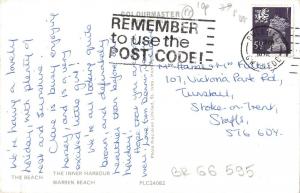 COLOURMASTER
19p
REMEMBER
to use the
POST CODE!
5½P
We're having a lovely
holiday, with plenty of
rest and sunshine.
Claire is busy enjoying
herself, and is very
excited little girl!
We're all looking quite
brown and definitely
healthier than before
Hope you are
Love from
Mr & Mrs Fuller
107, Victoria Park Rd,
Tunstall,
Stoke-on-Trent,
Staffs,
ST6 6DY.
THE BEACH
THE BEACH
THE INNER HARBOUR
WARREN BEACH
PLC24062
GR 66 595